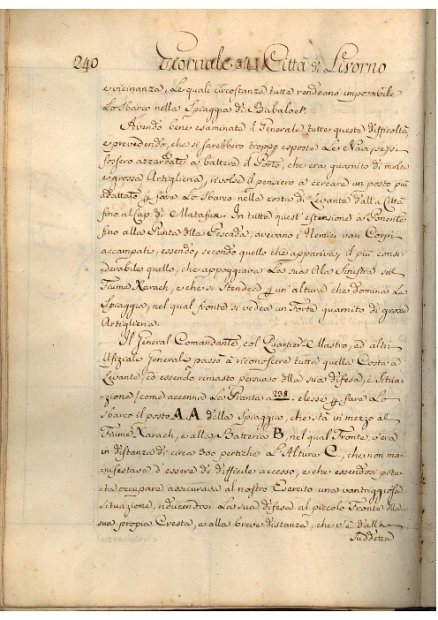 240 Giornale della Città di Livorno
e vicinanza, Le quali circostanze tutte rendeano impossibile
Lo Sbarco nella Spiaggia di Babaloet.
Avendo bene esaminate il Generale tutte queste difficoltà,
e prevedendo, che si sarebbero troppo esposte Le Navi, se si
fossero azzardate a battere il Porto, che era guarnito di molta
e grossa Artiglieria, rivolse il pensiero a cercare un posto più
adattato p fare Lo Sbarco nella costa di Levante dalla Città
fino al Cap. di Matafus. In tutta quest' estensione a Ponente
fino alla Punta della Pescada, avevano i Nemici varj Corpi
accampati, essendo, secondo quello che appariva, il più consi-
derabile quello, che appoggiava La sua Ala Sinistra sul
Fiume Xarach, e che si stendea p un'altura che domina La
Spiaggia, nel qual fronte si vedea un Forte guarnito di grossa
Artiglieria.
Il General Comandante col Quartier Mastro, ed altri
Ufiziali Generali passò a riconoscere tutta quella Costa a
Levante, ed essendo rimasto persuaso della sua difesa, e Situa-
zione / come accenna La Pianta a 238. elesse p fare Lo
Sbarco il posto A. A della Spiaggia, che sta in mezzo al
Fiume Xarach, e alla Batteria B, nel qual Fronte, v'era
in distanza di circa 300 pertiche L'Altura C, che non ma-
nifestava d'essere di difficile accesso, e che essendosi potu-
ta occupare assicurava al nostro Esercito una vantaggiosa
Situazione, riducendosi La sua difesa al piccolo Fronte della
sua propria Cresta, e alla breve distanza, che v'è dalla
Suddetta